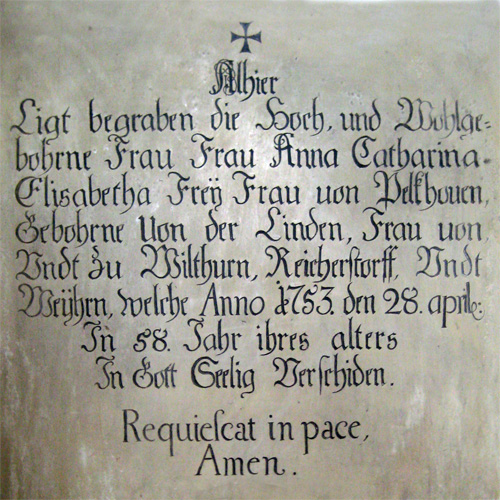 Alhier
Ligt begraben die Hoch, und Wohlge=
bohrne Frau Frau Anna Catharina
Elisabetha Freÿ Frau uon Pelkhouen,
Gebohrne Uon der Linden, Frau uon,
Vndt zu Wilthurn, Reicherstorff, Vndt
Weÿhrn, welche Anno 1753. den 28. aprile:
In 58. Jahr ihres alters
In Gott Seelig Verschiden.
Requiescat in pace,
Amen.